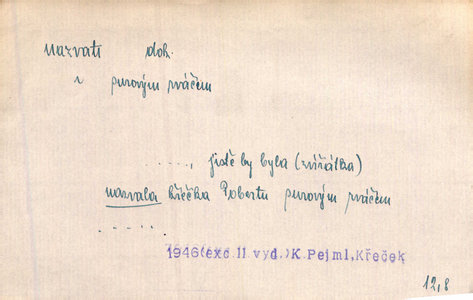 nazvati dok.
purovým rváčem
....., jistě by byla (zvířátka)
nazvala křečka Robertu purovým rváčem
.......
1946(exc.II.vyd.)K.Pejml,Křeček
12,8